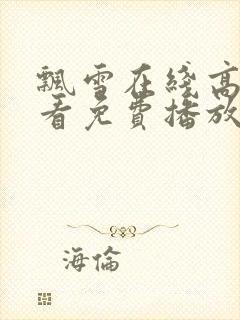 飄雪在綫高
看免費播放
海倫